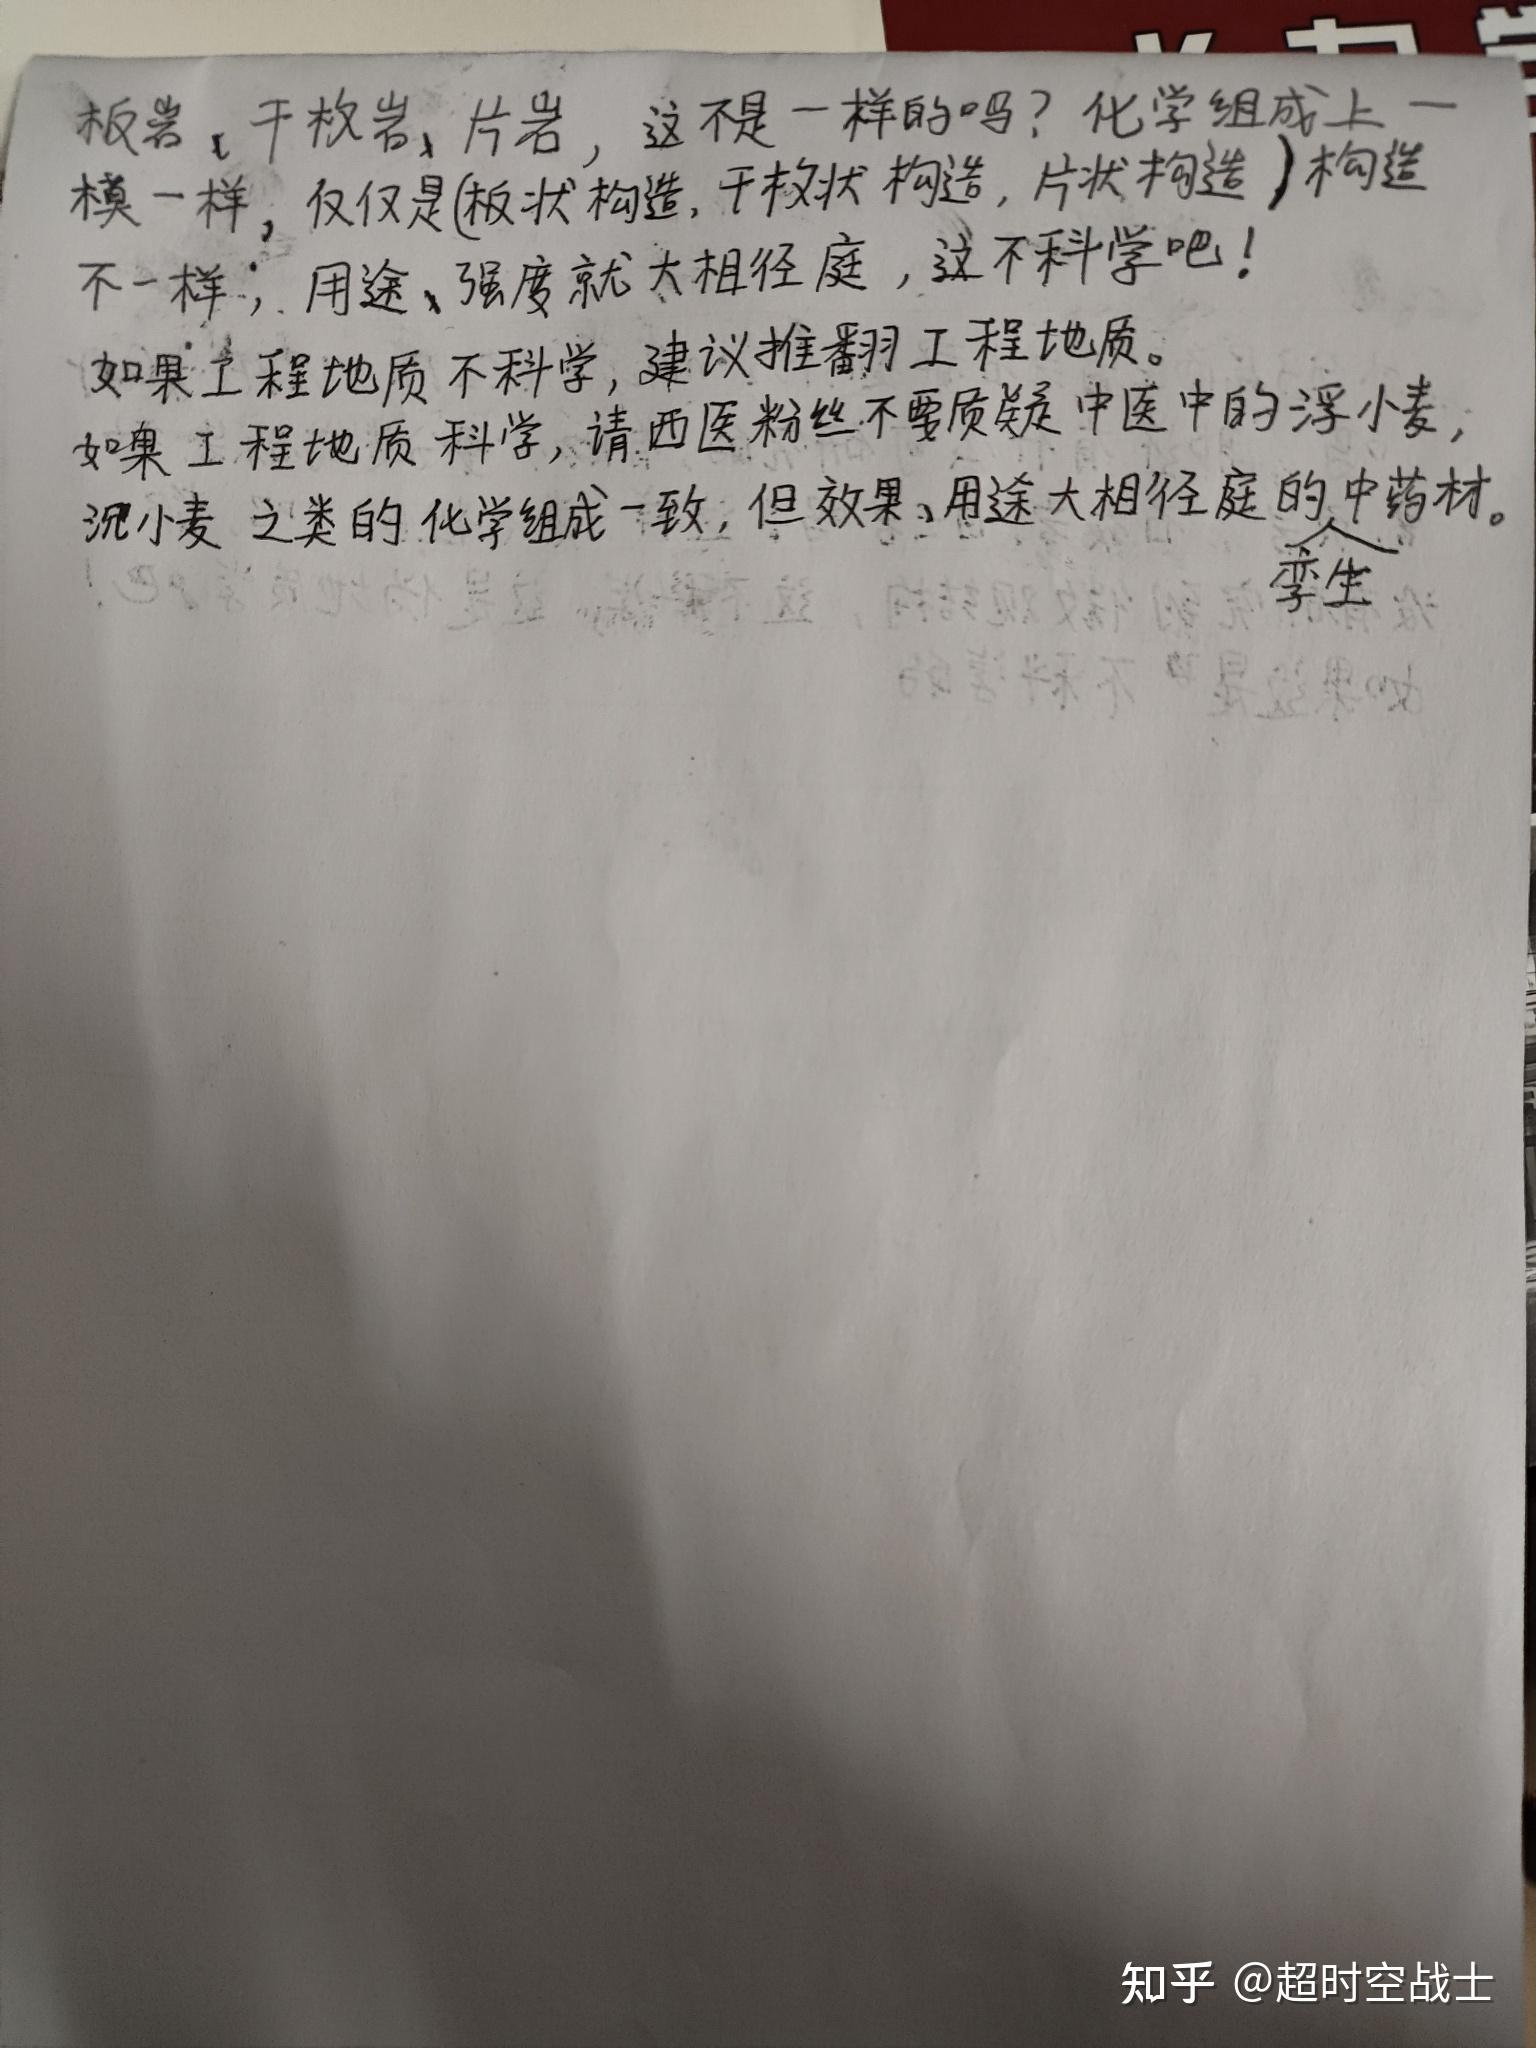 板岩、千枚岩、片岩，这不是一样的吗？化学组成上一
模一样，仅仅是(板状构造，千枚状构造，片状构造)构造
不一样；用途、强度就大相径庭，这不科学吧！
如果工程地质不科学，建议推翻工程地质。
如果工程地质科学，请西医粉丝不要质疑中医中的浮小麦，
沉小麦之类的化学组成一致，但效果、用途大相径庭的中药材。
孪生
知乎 @超时空战士